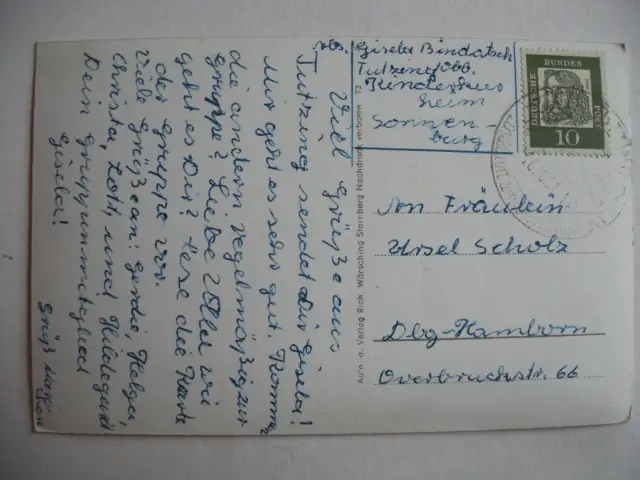 Viel Grüße aus
Tutzing sendet Dir Gisela!
Mir geht es sehr gut. Kommen
die andern regelmäßig zur
Gruppe? Liebe Ulla wie
geht es Dir? Lese die Karte
der Gruppe vor.
Viele Grüße an: Gerdie, Helga,
Christa, Lott, und Hildegard.
Dein Gruppenmitglied
Gisela!
Grüß
Abs. Gisela Bindatsch
Tutzing Obb.
Kinderkur
heim
Sonnen-
burg
DEUTSCHE BUNDES POST
10
An Fräulein
Ursel Scholz
Dbg-Hamborn
Overbruckstr. 66
Verlag Rich. Wörsching Starnberg Nachdruck verboten 72